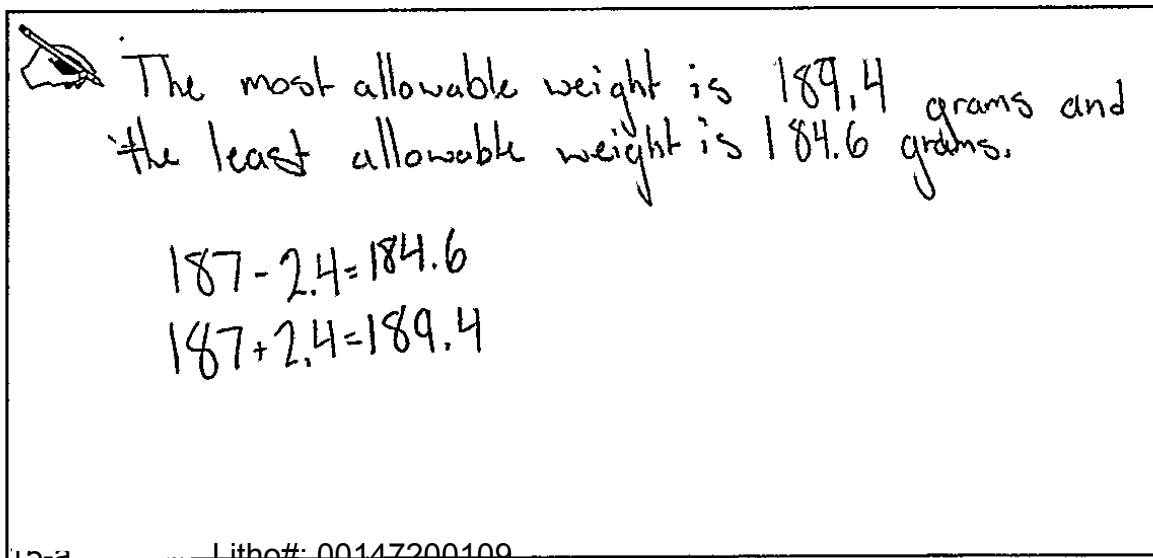 The most allowable weight is 189.4 grams and
the least allowable weight is 184.6 grams.
187-2.4=184.6
187+2.4=189.4
Litho#: 00147200109